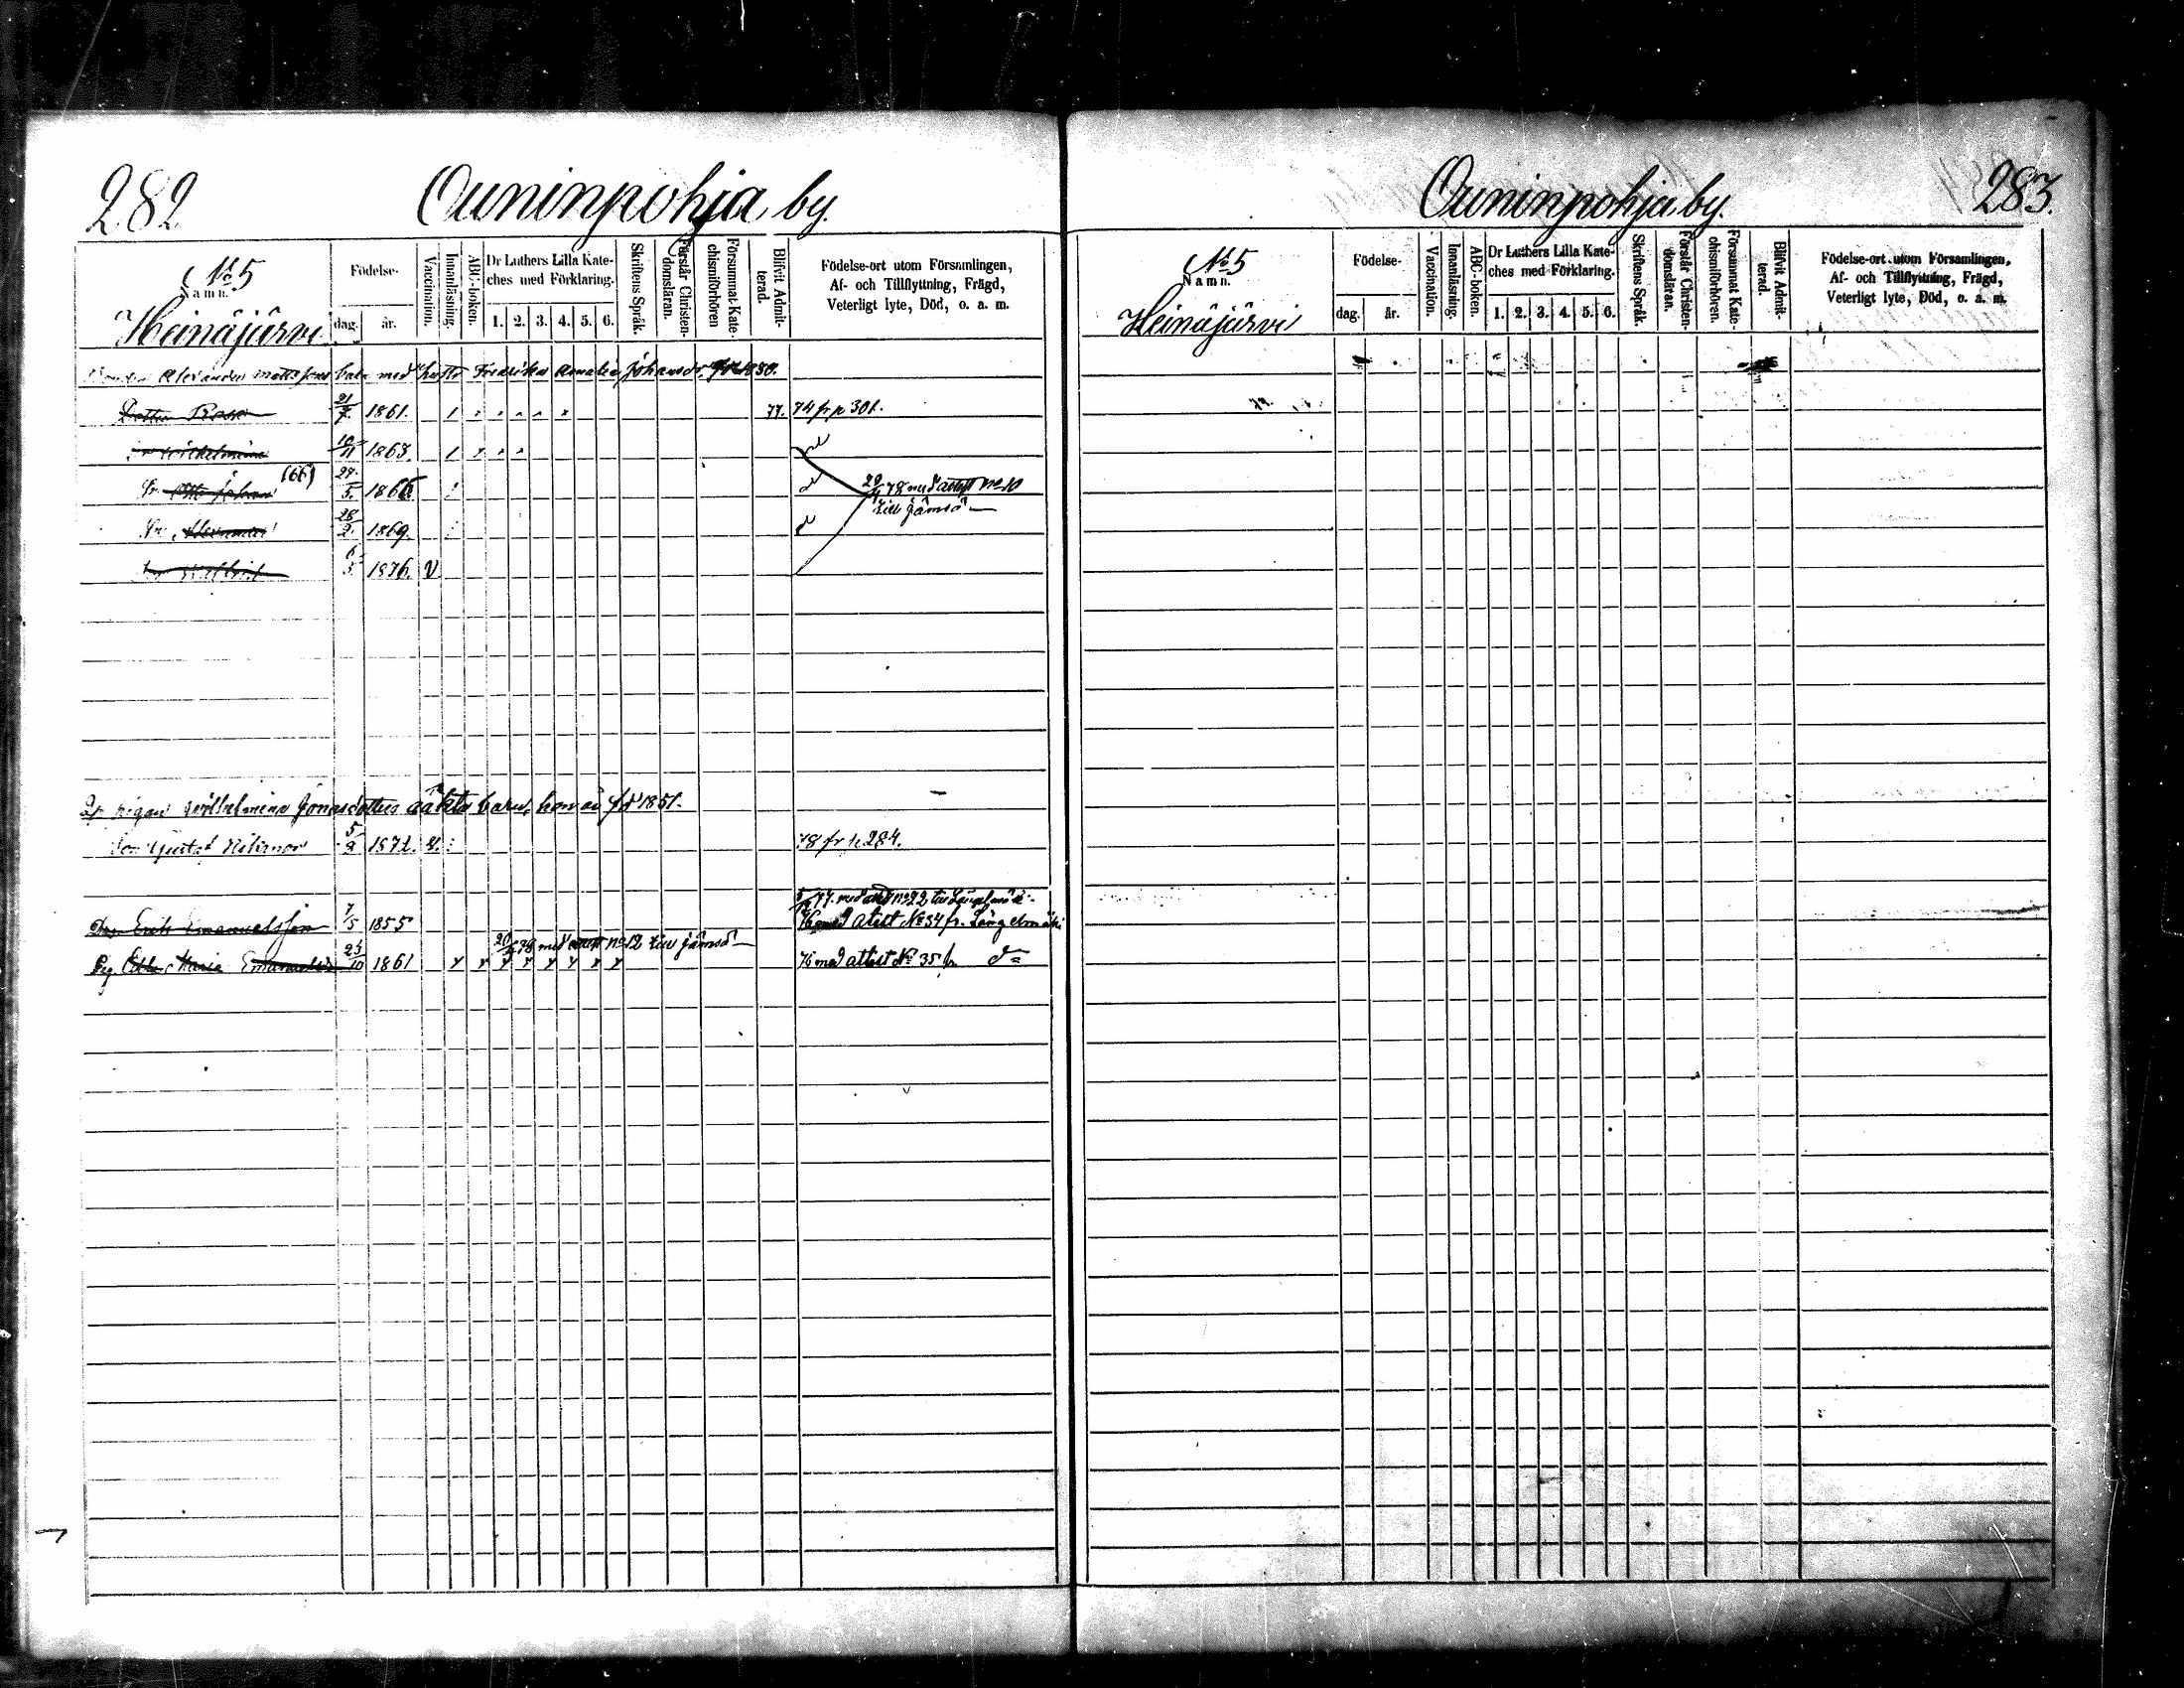 282
Ouninpohja by.
No 5
Namn.
Heinäjärvi
Födelse-
dag. år.
Vaccination.
Innanläsning.
ABC-boken.
Dr Luthers Lilla Kate-
ches med Förklaring.
1. 2. 3. 4. 5. 6.
Skriftens Språk.
Förstår Christen-
domsläran.
Försummat Kate-
chismiförhören
Blifvit Admit-
terad.
Födelse-ort utom Församlingen,
Af- och Tillflyttning, Frägd,
Veterligt lyte, Död, o. a. m.
Bonden Alexander Mattssons barn med hustr Fredrika Amalia Johansdr
Dotter Rosa 21/7 1861. 77. 74 fr p 301.
Wilhelmina 10/11 1863.
(66)
Sn Otto Johan 1866
20/4 78 med attest No 10
till Jämsä
Sn 28/2 1869.
6/5 1876. v
pigan Wilhelmina Jonasdotters oäkta barn, hon är fdd 1851.
Son Gustaf Nikanor 5/2 1872. v. 78 fr p 284.
77. med att No 22 till Längelmäki
Drg. Erik Emanuelsson 7/5 1855 76 med attest No 34 fr. Längelmäki
20/4 78 med attest No 12 till Jämsä
Pig. Edla Maria Emanuelsdr 25/10 1861 76 med attest No 35 fr do
283.
Ouninpohja by.
No 5
Namn.
Heinäjärvi
Födelse-
dag. år.
Vaccination.
Innanläsning.
ABC-boken.
Dr Luthers Lilla Kate-
ches med Förklaring.
1. 2. 3. 4. 5. 6.
Skriftens Språk.
Förstår Christen-
domsläran.
Försummat Kate-
chismiförhören.
Blifvit Admit-
terad.
Födelse-ort utom Församlingen,
Af- och Tillflyttning, Frägd,
Veterligt lyte, Död, o. a. m.